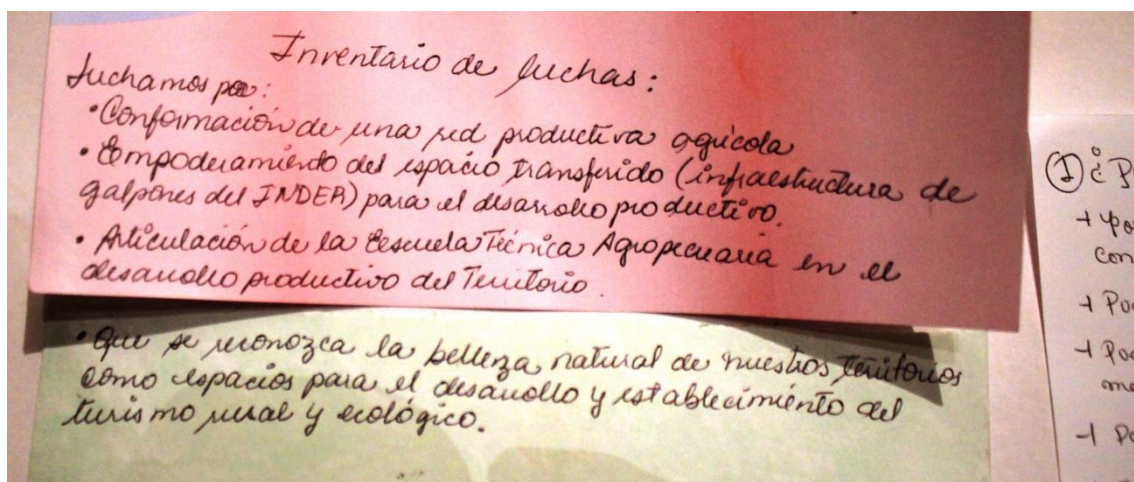 Inventario de luchas:
Luchamos por:
• Conformación de una red productiva agrícola
• Empoderamiento del espacio transferido (infraestructura de
galpones del INDER) para el desarrollo productivo.
• Articulación de la Escuela Técnica Agropecuaria en el
desarrollo productivo del Territorio.
• Que se reconozca la belleza natural de nuestros territorios
como espacios para el desarrollo y establecimiento del
turismo rural y ecológico.